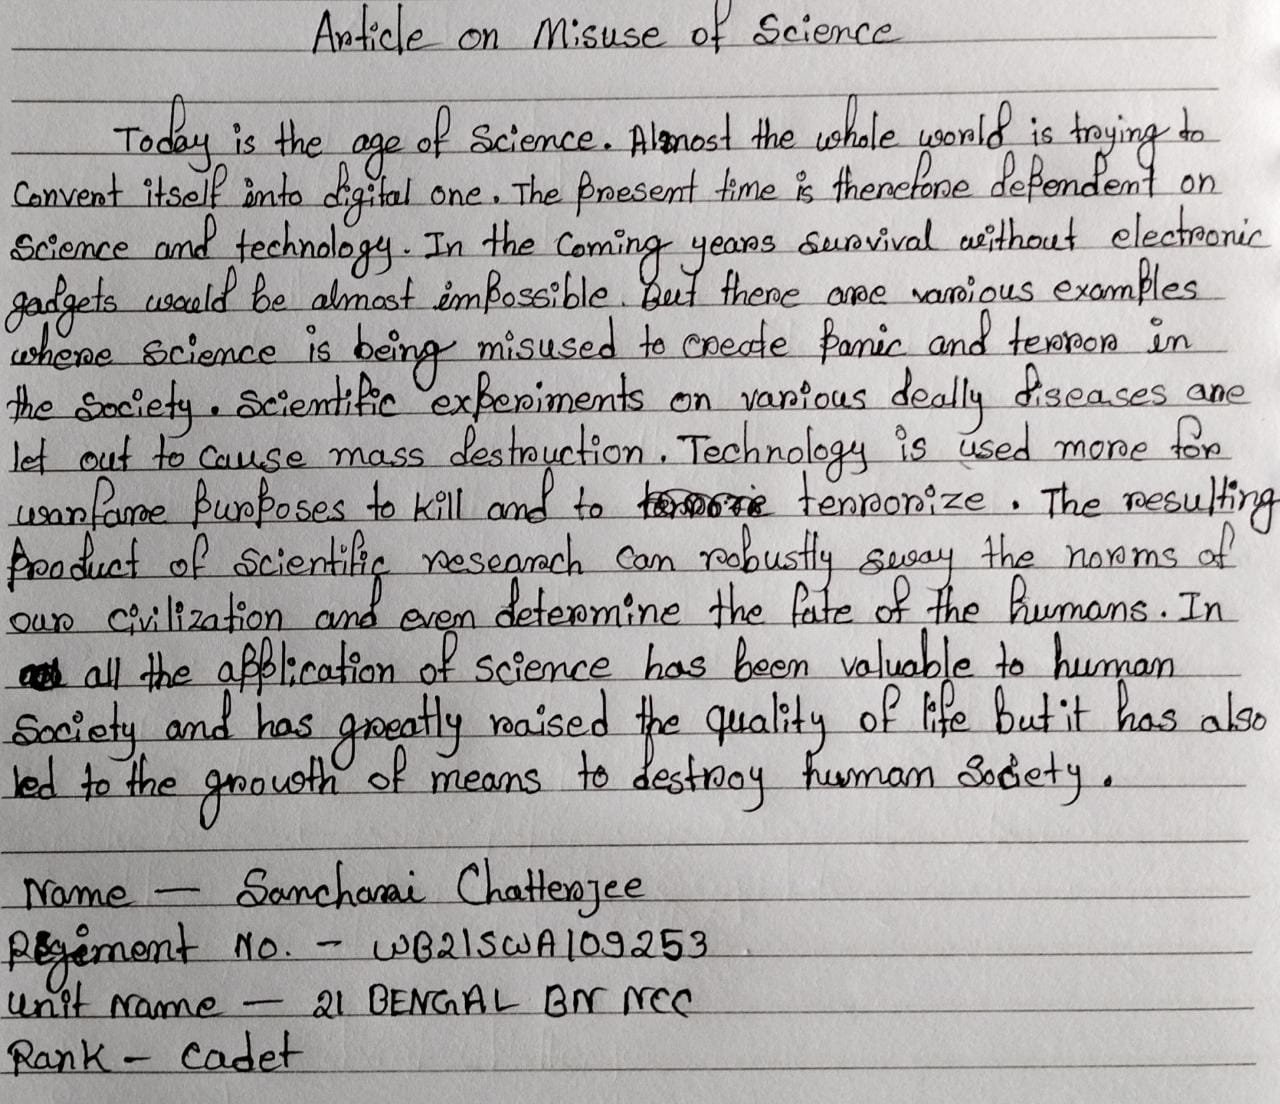 Article on Misuse of Science
Today is the age of Science. Almost the whole world is trying to
Convert itself into digital one. The Present time is therefore dependent on
Science and technology. In the Coming years survival without electronic
gadgets would be almost impossible. But there are various examples
where science is being misused to create panic and terror in
the Society. Scientific experiments on various deally diseases are
let out to cause mass destruction. Technology is used more for
warfare purposes to kill and to terrorize. The resulting
product of scientific research can robustly sway the norms of
our civilization and even determine the fate of the humans. In
all the application of science has been valuable to human
Society and has greatly raised the quality of life but it has also
led to the growth of means to destroy human Society.
Name — Sancharai Chatterjee
Regiment No. - WB21SWA109253
Unit Name — 21 BENGAL BN NCC
Rank - Cadet